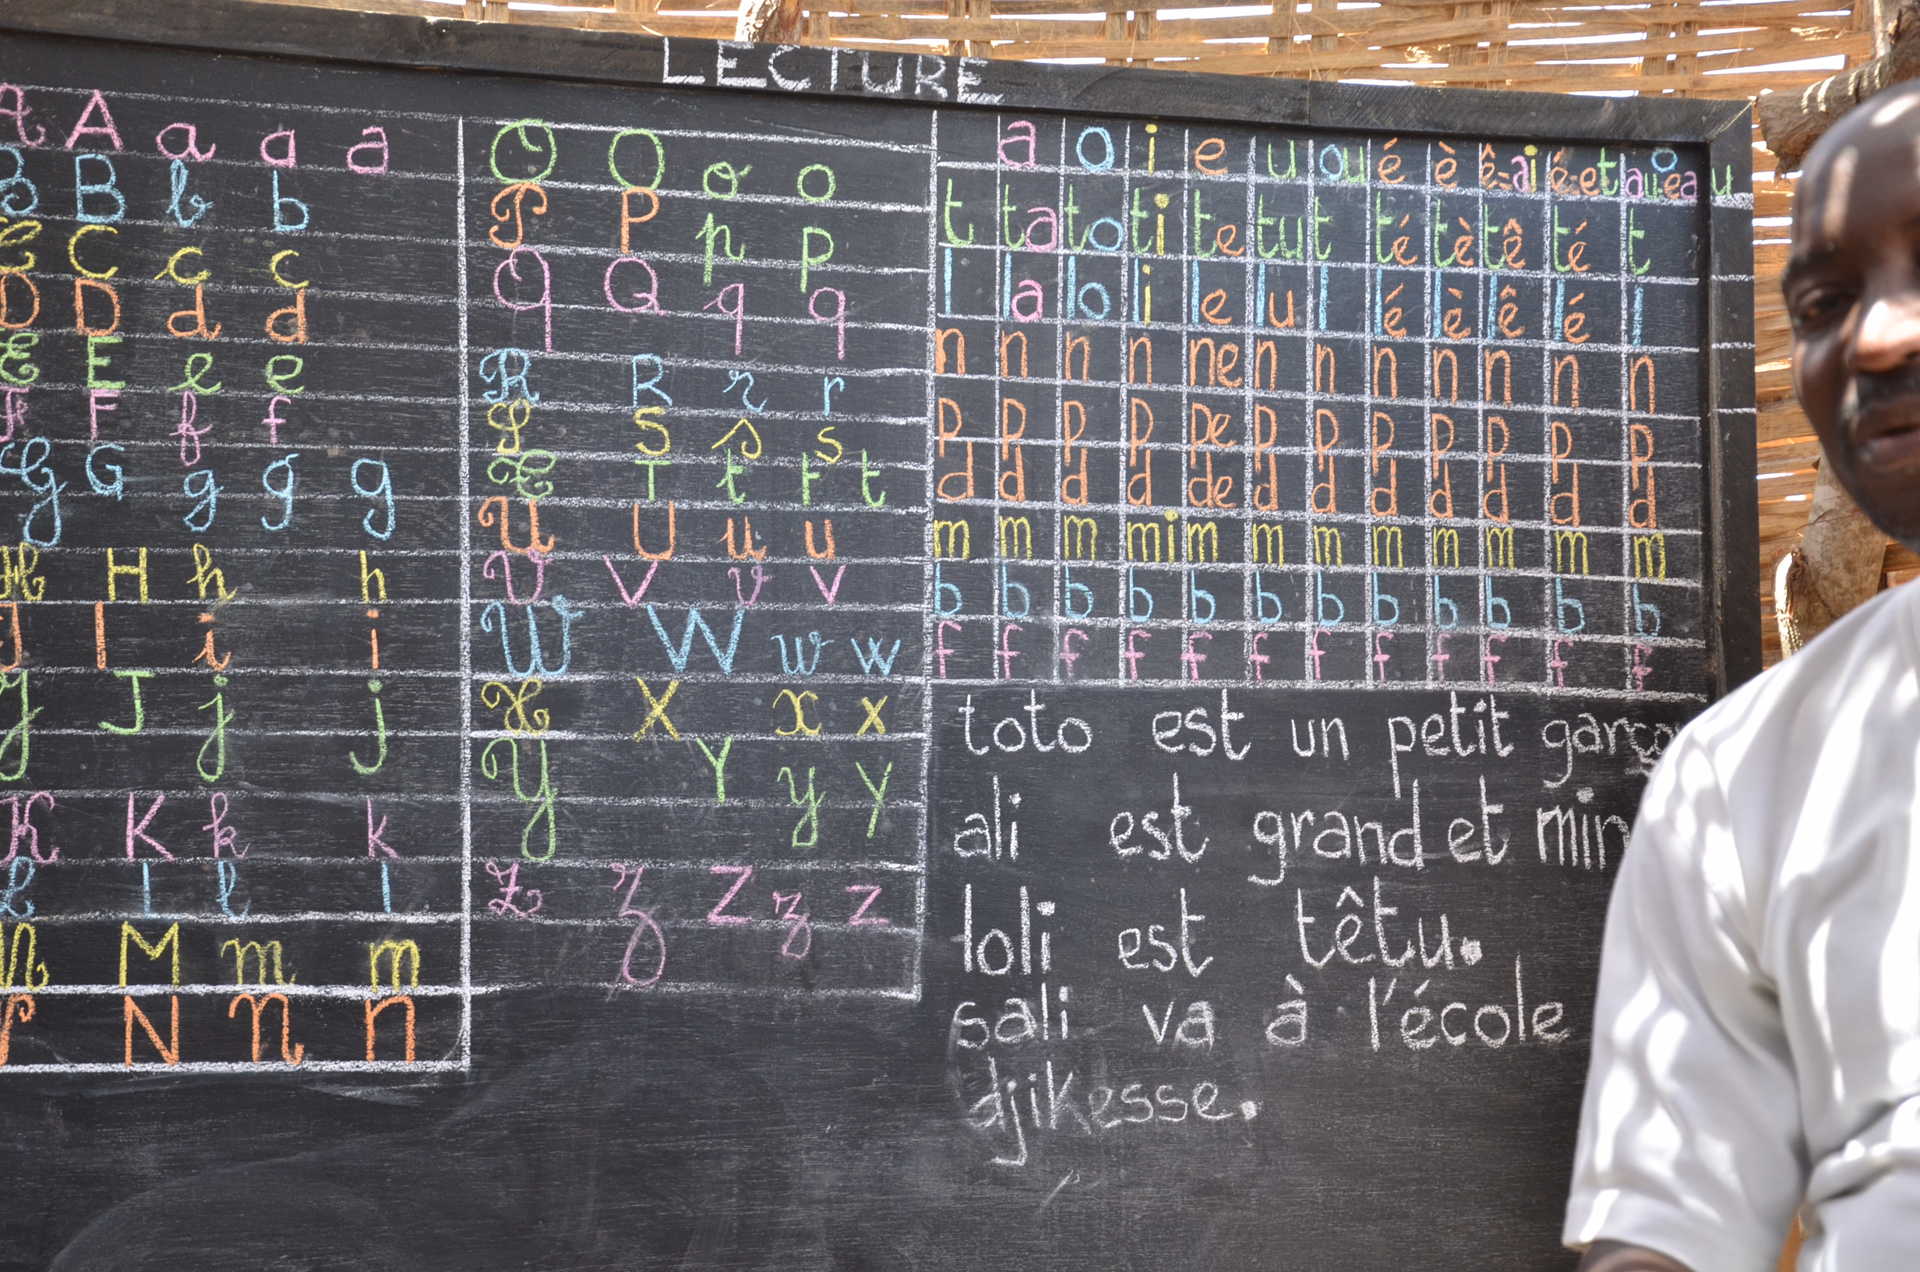 LECTURE
A A a a a
B B b b
C C c c
D D d d
E E e e
F F f f
G G g g g
H H h h
I I i i
J J j j
K K k k
L l l l
M M m m
N N n n
O O o o
P P p p
Q Q q q
R R r r
S S s s
T T t t t
U U u u
V V v v
W W w w
X X x x
Y Y y y
Z Z Z z z
a o i e u ou é è ê-ai é-et au-eau o
t ta to ti te tu t té tè tê té t
l la lo li le lu l lé lè lê lé l
n n n n ne n n n n n n n
p p p p pe p p p p p p p
d d d d de d d d d d d d
m m m mi m m m m m m m m
b b b b b b b b b b b b
f f f f f f f f f f f f
toto est un petit
ali est grand et
loli est têtu.
sali va à l'école
djikesse.